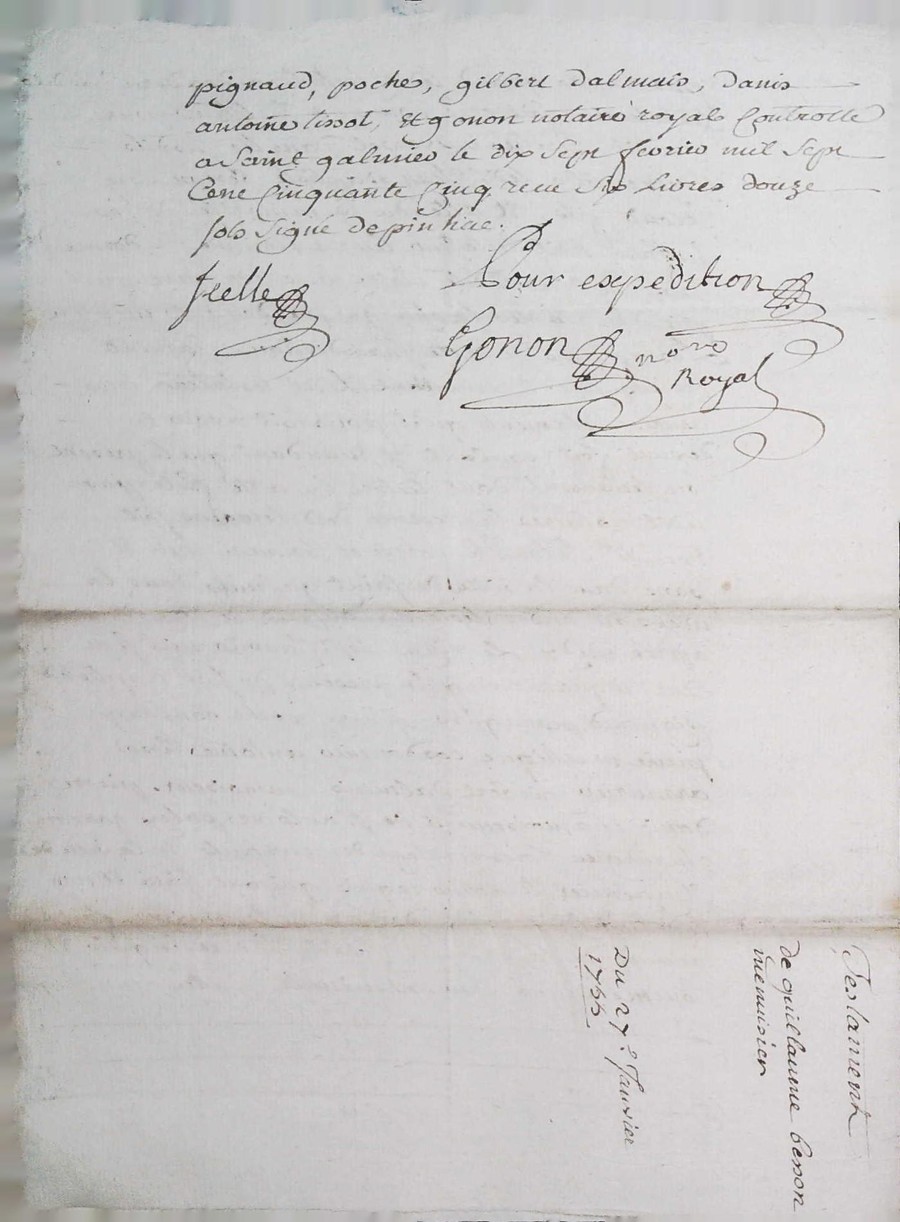 pignaud, poches, gilbert dalmais, danis
antoine tissot, Et gonon notaire royal Controllé
a Saint galmier le dix sept fevrier mil sept
Cent Cinquante Cinq receu Six Livres douze
sols Signé depinhac.
Pour expedition
Gonon nore
Royal
Testament
de guillaume besson
menuisier
Du 27e Janvier
1755